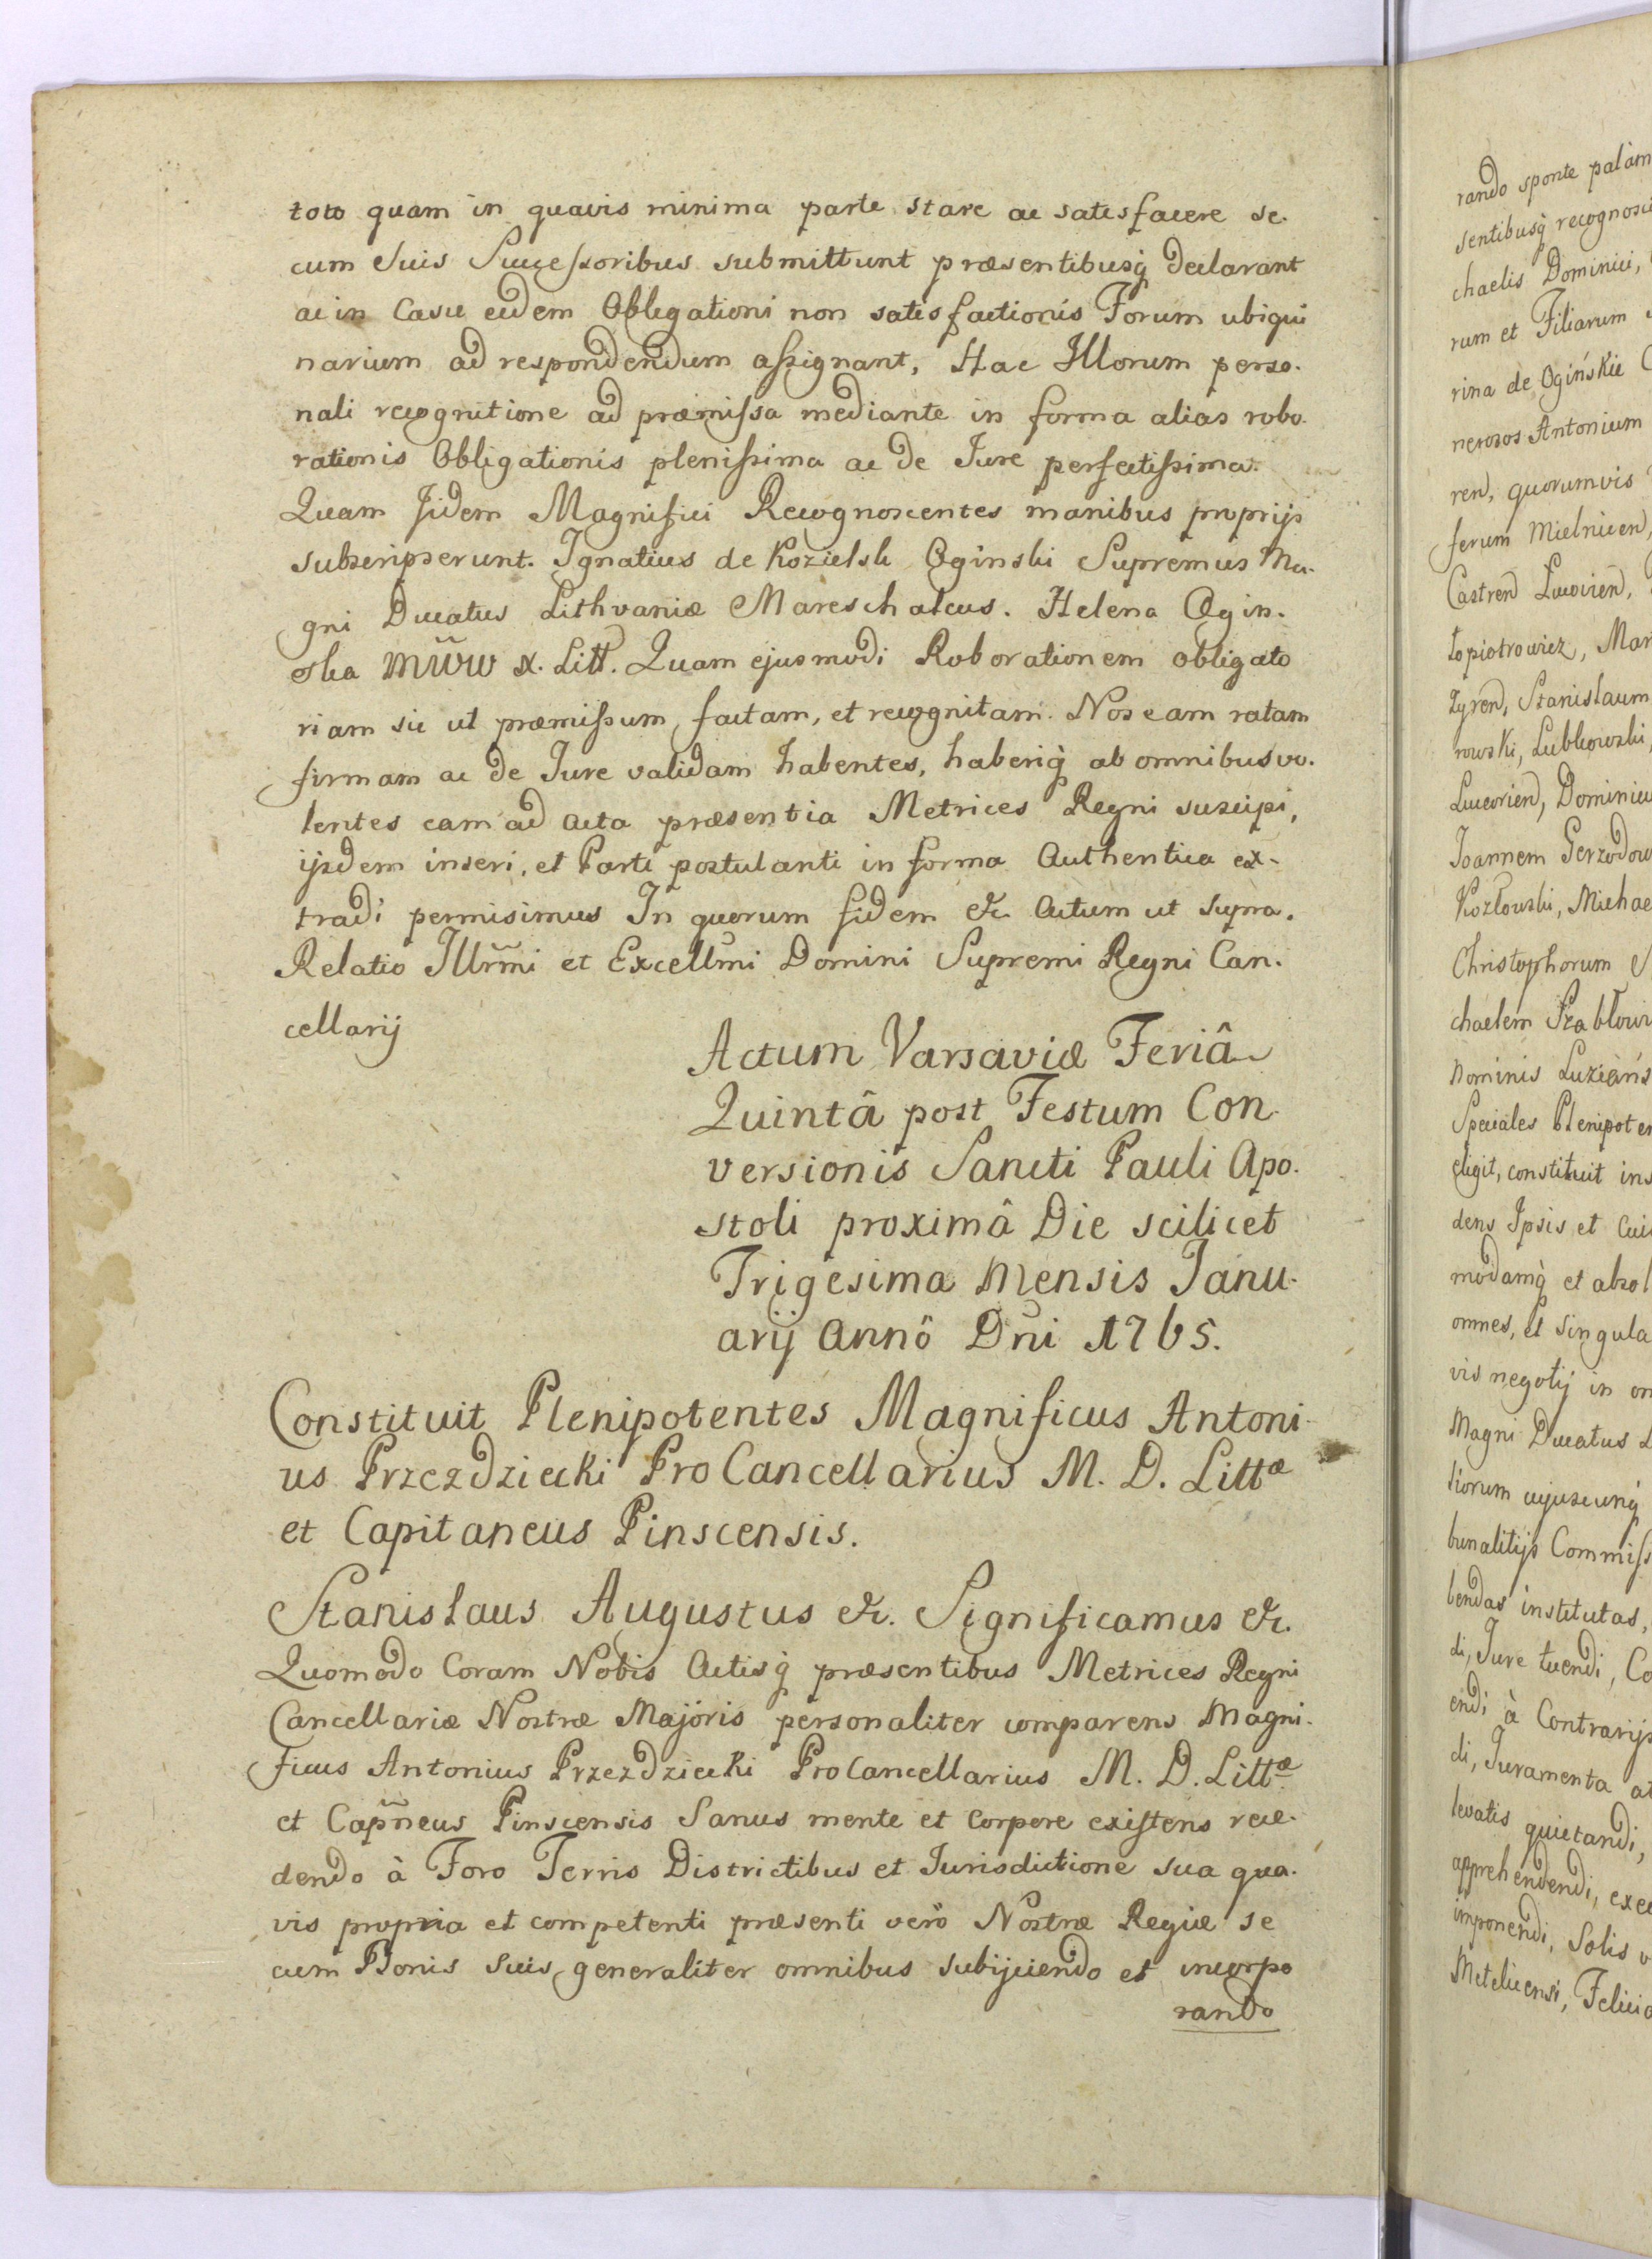 toto quam in quavis minima parte stare ac satisfacere se.
cum suis Successoribus submittunt præsentibusq̀ declarant
ac in Casu eidem Obligationi non satisfactionis Forum ubiqui
narium ad respondendum assignant, Hac Illorum perso.
nali recognitione ad præmissa mediante in forma alias robo.
rationis Obligationis plenissima ac de Jure perfectissima.
Quam Jidem Magnifici Recognoscentes manibus proprijs
subscripserunt. Ignatius de Kozielsk Oginski Supremus Ma.
gni Ducatus Lithvaniæ Mareschalcus. Helena Ogin.
ska MWW X. Litt. Quam ejusmodi Roborationem obligato
riam sic ut præmissum factam, et recognitam. Nos eam ratam
firmam ac de Jure validam habentes, haberiq̀ ab omnibus vo.
lentes eam ad acta præsentia Metrices Regni suscipi,
ijsdem inseri, et Parti postulanti in forma Authentica ex-
tradi permisimus In quorum fidem &c Actum ut supra.
Relatio Illr̃mi et Excellm̃i Domini Supremi Regni Can.
cellarij
Actum Varsaviæ Feriâ
Quintâ post Festum Con.
versionis Sancti Pauli Apo.
stoli proximâ Die scilicet
Trigesima Mensis Janu.
arij Annô Dn̄i 1765.
Constituit Plenipotentes Magnificus Antoni.
us Przezdziecki ProCancellarius M. D. Littæ
et Capitaneus Pinscensis.
Stanislaus Augustus &c. Significamus &c.
Quomodo Coram Nobis Actisq̀ præsentibus Metrices Regni
Cancellariæ Nostræ Majoris personaliter comparens Magni.
ficus Antonius Przezdziecki ProCancellarius M. D. Littæ
et Capñeus Pinscensis Sanus mente et corpore existens rece.
dendo à Foro Terris Districtibus et Jurisdictione sua qua.
vis propria et competenti præsenti verò Nostræ Regiæ se
cum Bonis suis generaliter omnibus subijciendo et incorpo
rando
rando sponte palàm
sentibusq̀ recognosci
chaelis Dominici,
rum et Filiarum
rina de Ogińskie
nerosos Antonium
ren, quorumvis
ferum Mielnicen,
Castren Luviren,
topiotrowicz, Mar
zyren, Stanislaum
rowski, Lubkowski,
Luceorien, Dominicu
Joannem Gerzodow
Kozlowski, Michae
Christophorum S
chaelem Szabłowi
Nominis
Speciales Plenipoten
eligit, constituit ins
dens Ipsis et Cui
modamq̀ et absol
omnes, et singula
vis negotij in om
Magni Ducatus L
tiorum cujuscunq̀
bunalitijs Commiss
bendas institutas,
di, Jure tuendi, Co
endi à Contrarijs
di, Juramenta at
levatis quietandi,
apprehendendi, exec
imponendi, Solis v